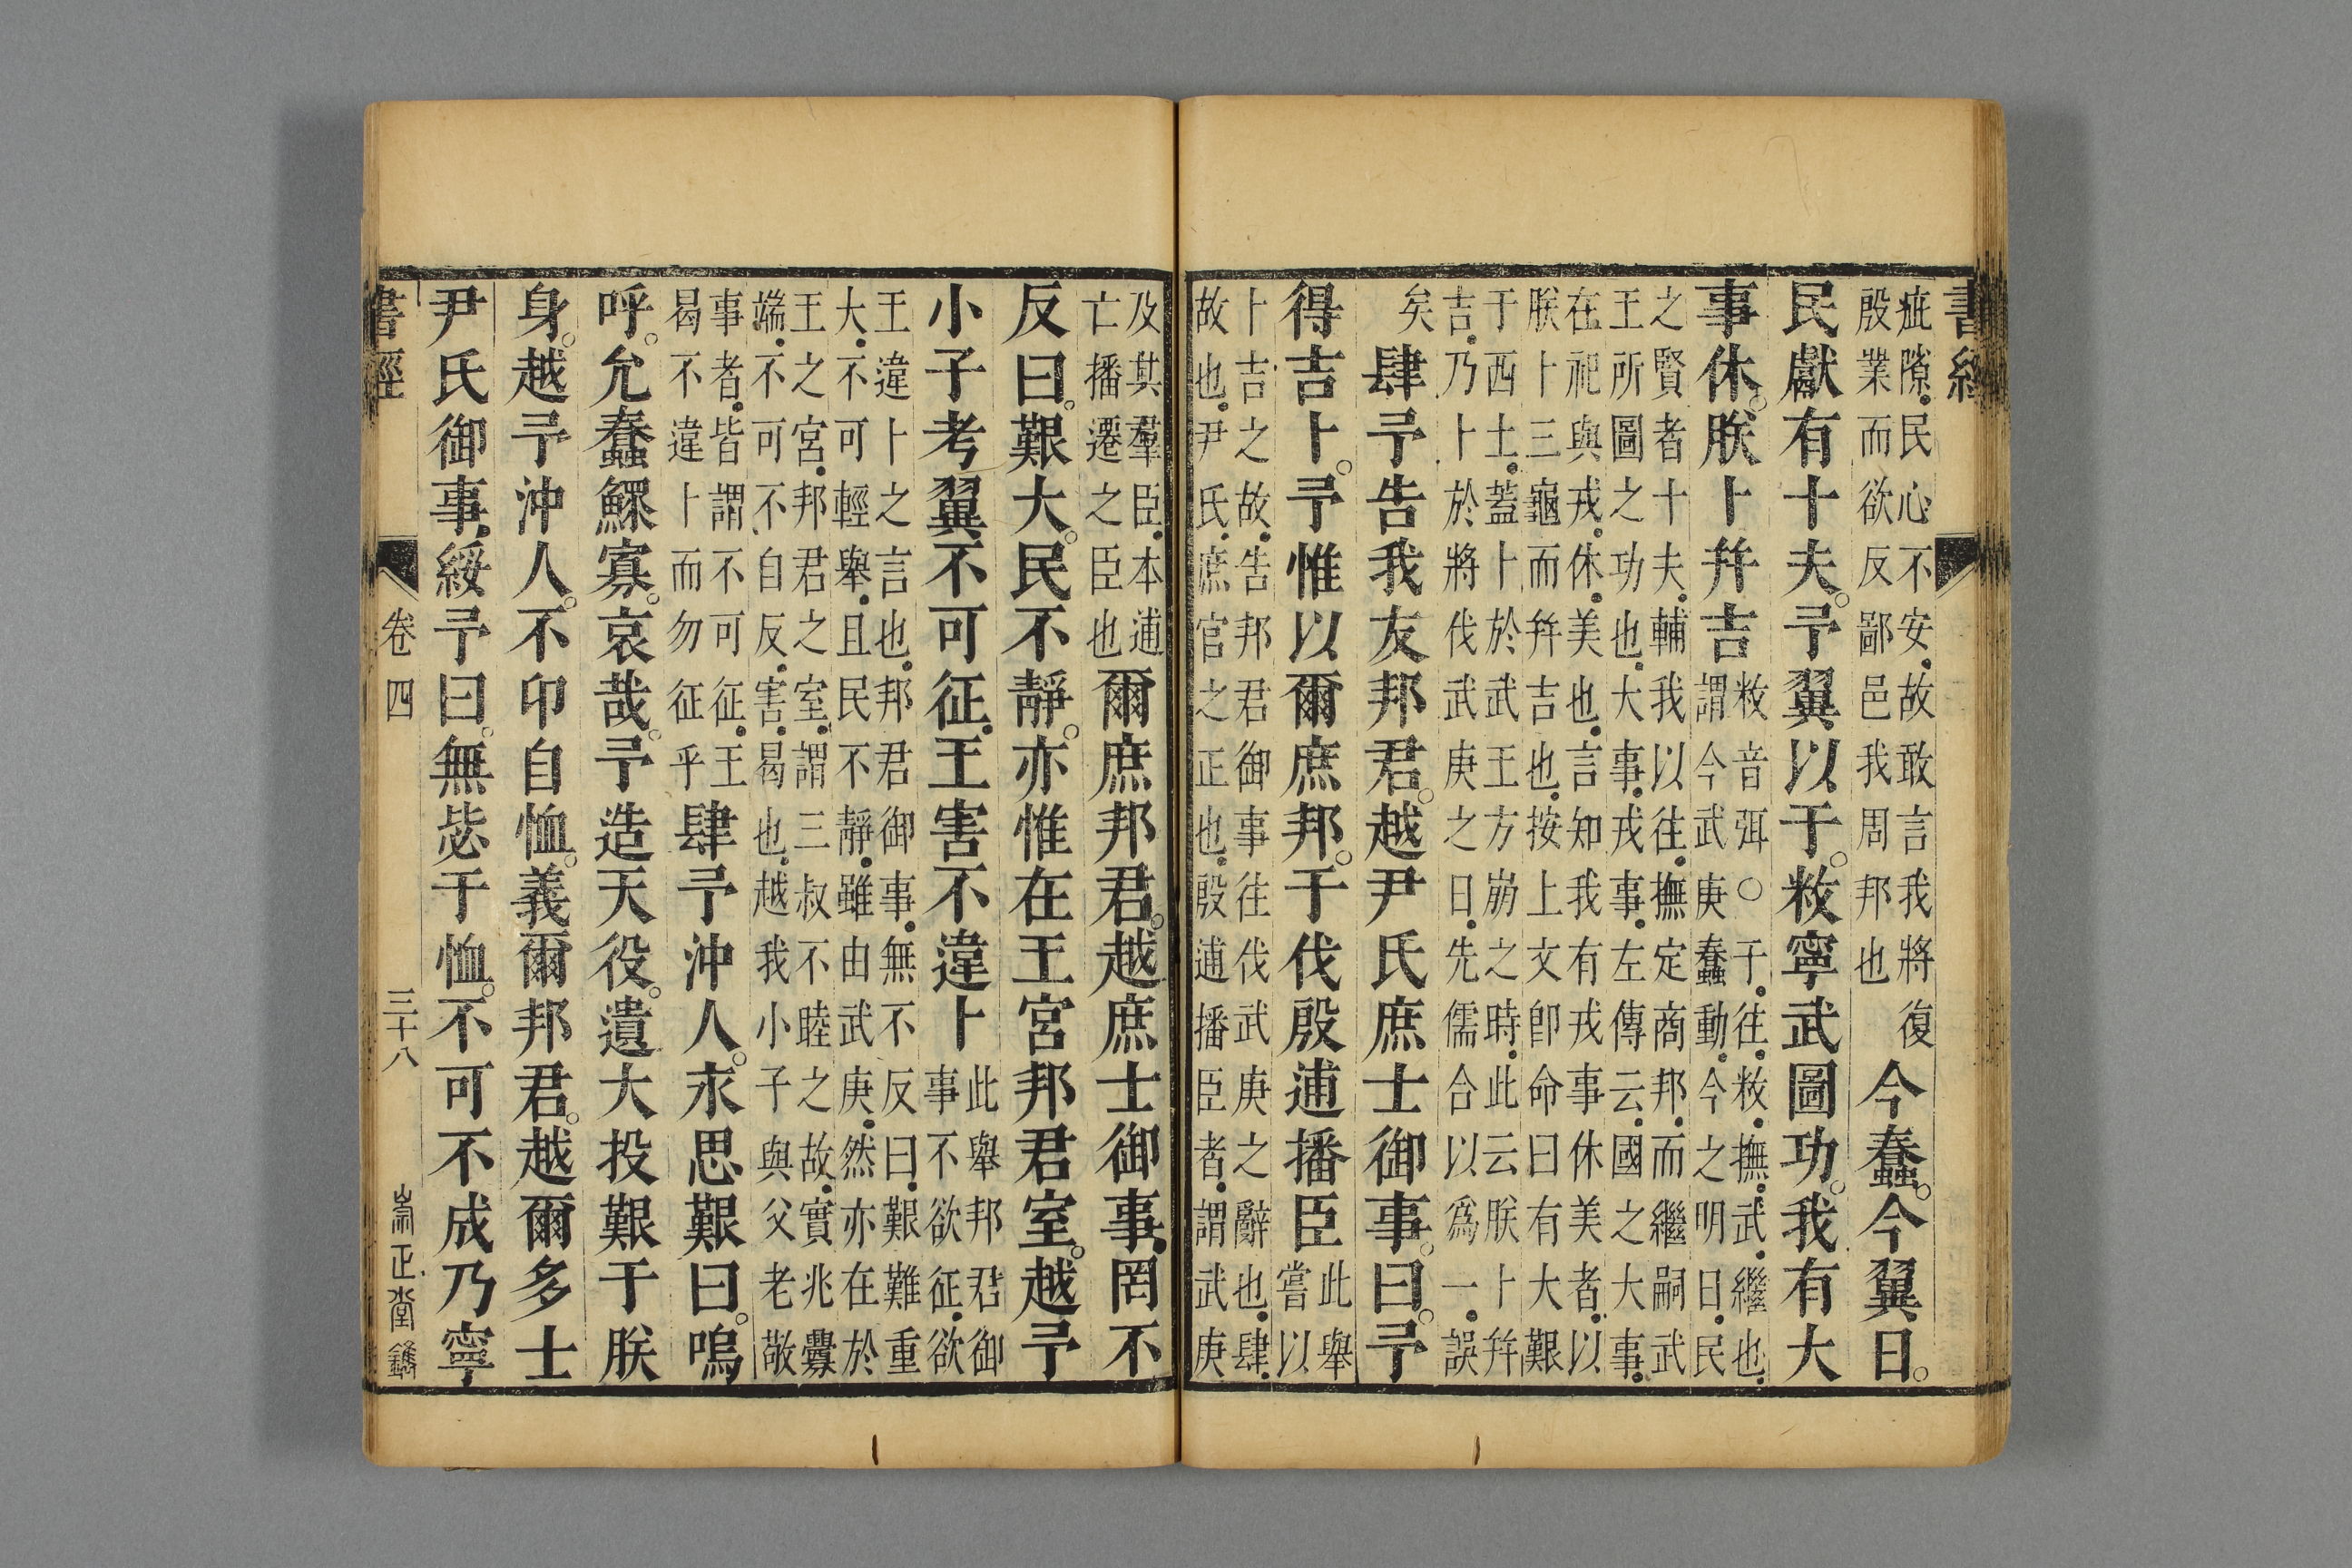 書經
疵隙民心不安故敢言我將復
殷業而欲反鄙邑我周邦也
今蠢今翼日
民獻有十夫予翼以于敉寧武圖功我有大
事休朕卜幷吉
敉音弭○于往敉撫武繼也
謂今武庚蠢動今之明日民
之賢者十夫輔我以往撫定商邦而繼嗣武
王所圖之功也大事戎事左傳云國之大事
在祀與戎休美也言知我有戎事休美者以
朕卜三龜而幷吉也按上文卽命曰有大艱
于西土蓋卜於武王方崩之時此云朕卜幷
吉乃卜於將伐武庚之日先儒合以爲一誤
矣
肆予告我友邦君越尹氏庶士御事曰予
得吉卜予惟以爾庶邦于伐殷逋播臣
此舉
嘗以
卜吉之故告邦君御事往伐武庚之辭也肆
故也尹氏庶官之正也殷逋播臣者謂武庚
及其羣臣本逋
亡播遷之臣也
爾庶邦君越庶士御事罔不
反曰艱大民不靜亦惟在王宮邦君室越予
小子考翼不可征王害不違卜
此舉邦君御
事不欲征欲
王違卜之言也邦君御事無不反曰艱難重
大不可輕舉且民不靜雖由武庚然亦在於
王之宮邦君之室謂三叔不睦之故實兆釁
端不可不自反害曷也越我小子與父老敬
事者皆謂不可征王
曷不違卜而勿征乎
肆予沖人永思艱曰嗚
呼允蠢鰥寡哀哉予造天役遺大投艱于朕
身越予沖人不卬自恤義爾邦君越爾多士
尹氏御事綏予曰無毖于恤不可不成乃寧
書經 卷四 三十八 崇正堂鐫